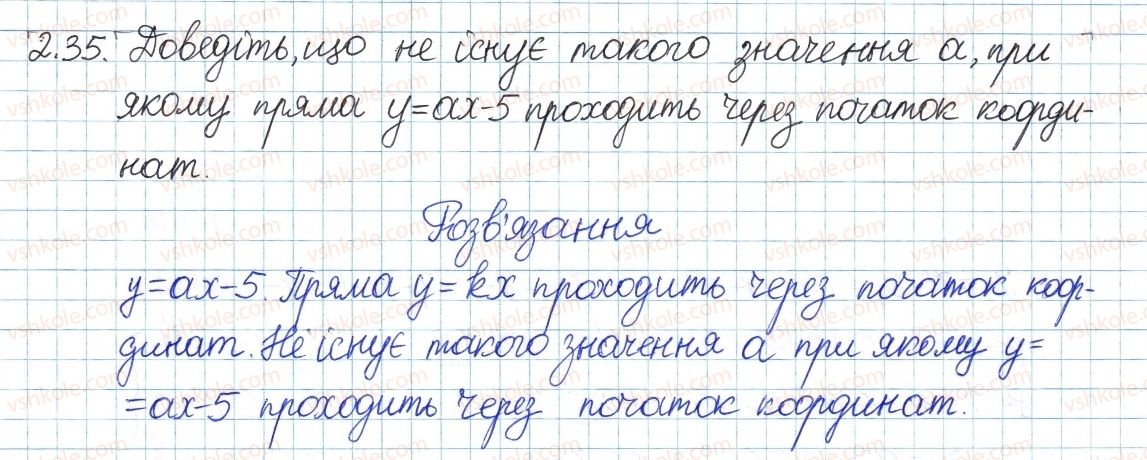 2.35. Доведіть, що не існує такого значення а, при
якому пряма y=ax-5 проходить через початок коорди-
нат.
Розв'язання
y=ax-5. Пряма y=kx проходить через початок коор-
динат. Не існує такого значення а при якому y=
=ax-5 проходить через початок координат.